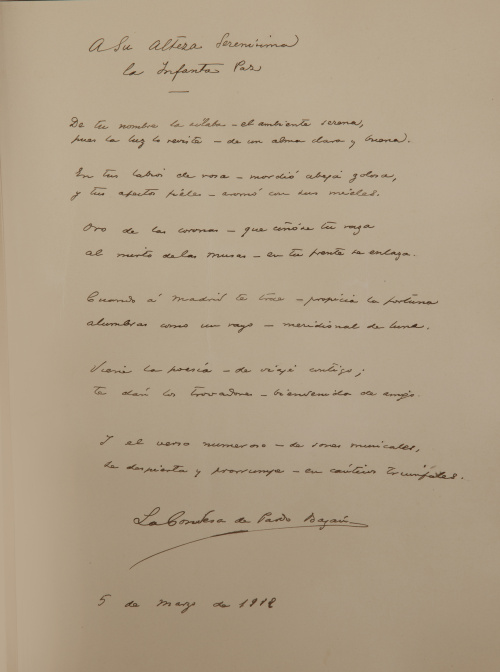 A Su Alteza Serenísima
la Infanta Paz
De tu nombre la sílaba – el ambiente serena,
pues la luz lo reviste – de un alma clara y buena.
En tus labios de rosa – mordió abeja golosa,
y tus mieles.
Oro de las coronas – que ciñóse tu raza
al mirto de las musas – en tu frente se enlaza.
Cuando á Madrid te trae – propicia la fortuna
alumbras como un rayo – meridional de luna.
Viene la poesía – de viaje contigo;
te dan los trovadores – bienvenida de amigo.
Y el verso numeroso – de sones musicales,
se despierta y prorrumpe – en cánticos triunfales.
La Condesa de Pardo Bazán
5 de marzo de 1912